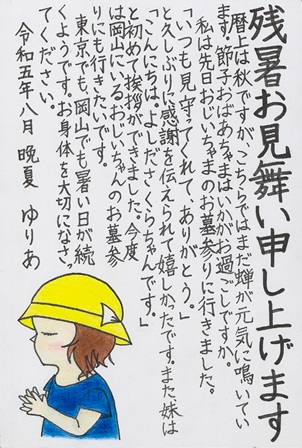 残暑お見舞い申し上げます
暦上は秋ですが、こちらではまだ蝉が元気に鳴いてい
ます。節子おばあちゃまはいかがお過ごしですか。
私は先日おじいちゃまのお墓参りに行きました。
「いつも見守ってくれて、ありがとう。」
と久しぶりに感謝を伝えられて嬉しかったです。また妹は
「こんにちは。よしださくらちゃんです。」
と初めて挨拶ができました。今度
は岡山にいるおじいちゃんのお墓参
りにも行きたいです。
東京でも、岡山でも暑い日が続
くようです。お身体を大切になさっ
てください。
令和五年八月 晩夏 ゆりあ